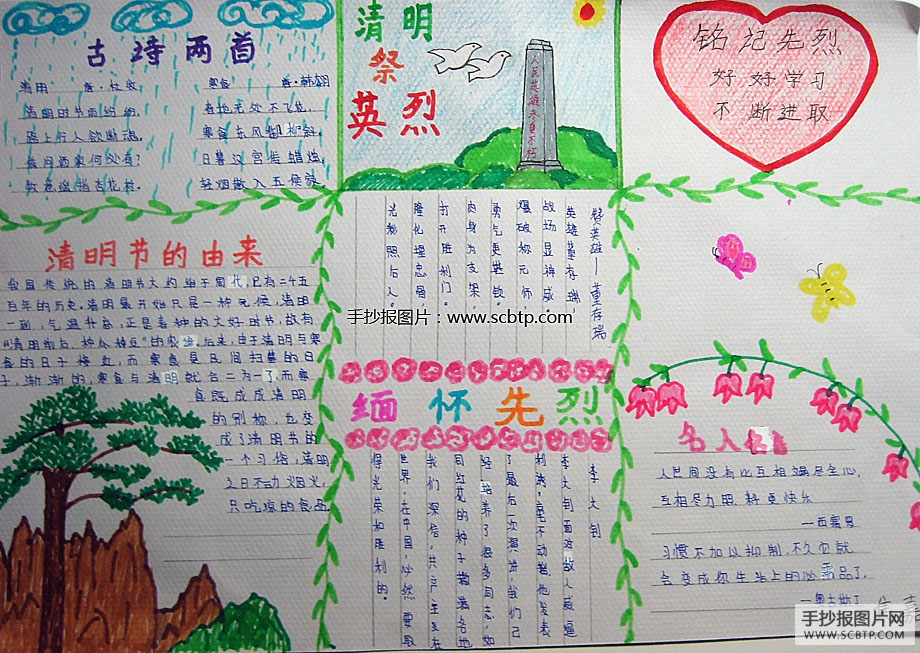 古诗两首
清明 唐·杜牧
清明时节雨纷纷,
路上行人欲断魂,
借问酒家何处有?
牧童遥指杏花村.
寒食 唐·韩翃
春城无处不飞花,
寒食东风御柳斜.
日暮汉宫传蜡烛,
轻烟散入五侯家.
清明
祭
英烈
人民英雄永垂不朽
铭记先烈
好好学习
不断进取
清明节的由来
我国传统的清明节大约始于周代,已有二千五
百年的历史.清明最开始只是一种元候,清明
一到,气温升高,正是春种的大好时节,故有
"清明前后,种瓜种豆"的农谚.后来,由于清明与寒
食的日子接近,而寒食是民间扫墓的日
子,渐渐的,寒食与清明就合二为一了,而寒
食既成成清明
的别称,也变
成了清明节的
一个习俗,清明
之日不动烟火,
只吃凉的食品
赞英雄—董存瑞
英雄董存瑞,
战场显神威,
爆破称元师,
勇气更甚钦.
肉身为支架,
打开胜利门.
隆化埋忠骨,
光勉照后人.
手抄报图片:www.scbtp.com
缅怀先烈
李大钊
李大钊面对敌人威逼
利诱,毫不动摇.他发表
了最后一次演讲,我们已
经培养了很多同志,如
同红花的种子撒满各地
我们深信,共产主义在
世界,在中国,必然要取
得光荣和胜利的.
名人名言
人世间没有比互相竭尽全心,
互相尽力用.料更快乐
—西塞罗
习惯不加以抑制,不久它就
会变成你生活上的必需品了.
—奥古斯丁
手抄报图片网
WWW.SCBTP.COM